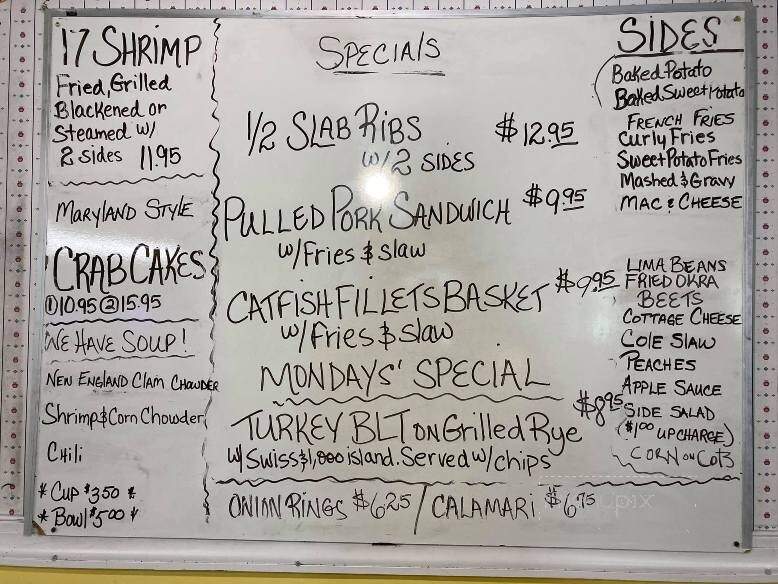 17 SHRIMP
Fried, Grilled
Blackened or
Steamed w/
2 sides 11.95
MARYLAND STYLE
CRAB CAKES
① 10.95 ② 15.95
WE HAVE SOUP!
NEW ENGLAND Clam CHOWDER
Shrimp & Corn Chowder
CHili
* CUP $3.50 *
* Bowl $5.00 *
SPECIAlS
1/2 SLAB RIBS $12.95
w/ 2 SIDES
PULLED PORK SANDWICH $9.95
w/ Fries & Slaw
CATFISH FILLETS BASKET $9.95
w/ fries & slaw
MONDAYS' SPECIAL
TURKEY BLT ON Grilled Rye $8.95
w/ Swiss & 1,000 island. Served w/ chips
ONION RINGS $6.25 / CALAMARI $6.75
SIDES
Baked Potato
Baked Sweet Potato
FRENCH FRIES
Curly Fries
Sweet Potato Fries
Mashed & Gravy
MAC & CHEESE
LIMA BEANS
FRIED OKRA
BEETS
COTTAGE CHEESE
COlE SlAW
PEACHES
APPLE SAUCE
SIDE SALAD
($1.00 UPCHARGE)
CORN ON COB